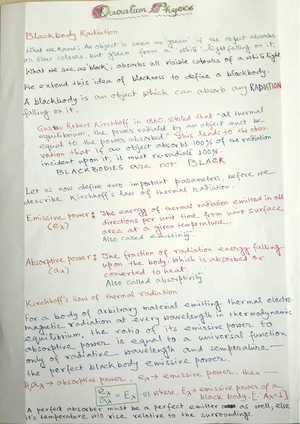 Quantum Physics
Blackbody Radiation
What we know: An object is seen as 'green' if the object absorbs
all other colours, but 'green' from a 'white' light falling on it.
What we see as 'black', absorbs all visible colours of a white light
We extend this idea of blackness to define a blackbody.
A blackbody is an object which can absorb any RADIATION
falling on it.
Gustav Robert Kirchhoff in 1860 stated that "at thermal
equilibrium, the power radiated by an object must be
equal to the power absorbed". This leads to the obser-
vation that if an object absorbs 100% of the radiation
incident upon it, it must re-radiate 100%.
BLACKBODIES are not BLACK
Let us now define two important parameters, before we
describe Kirchhoff's law of thermal radiation.
Emissive power: The energy of thermal radiation emitted in all
(eλ) directions per unit time from unit surface
area at a given temperature.
Also called emissivity
Absorptive power: The fraction of radiation energy falling
(aλ) upon the body, which is absorbed or
converted to heat.
Also called absorptivity
Kirchhoff's law of thermal radiation
For a body of arbitrary material emitting thermal electro-
magnetic radiation at every wavelength in thermodynamic
equilibrium, the ratio of its emissive power to
absorptive power is equal to a universal function
only of radiative wavelength and temperature —
the perfect blackbody emissive power.
If aλ → absorptive power, eλ → emissive power, then —
eλ/aλ = Eλ where, Eλ → emissive power of a
black body. [∵ Aλ=1]
A perfect absorber must be a perfect emitter as well, else
it's temperature will rise relative to the surroundings.